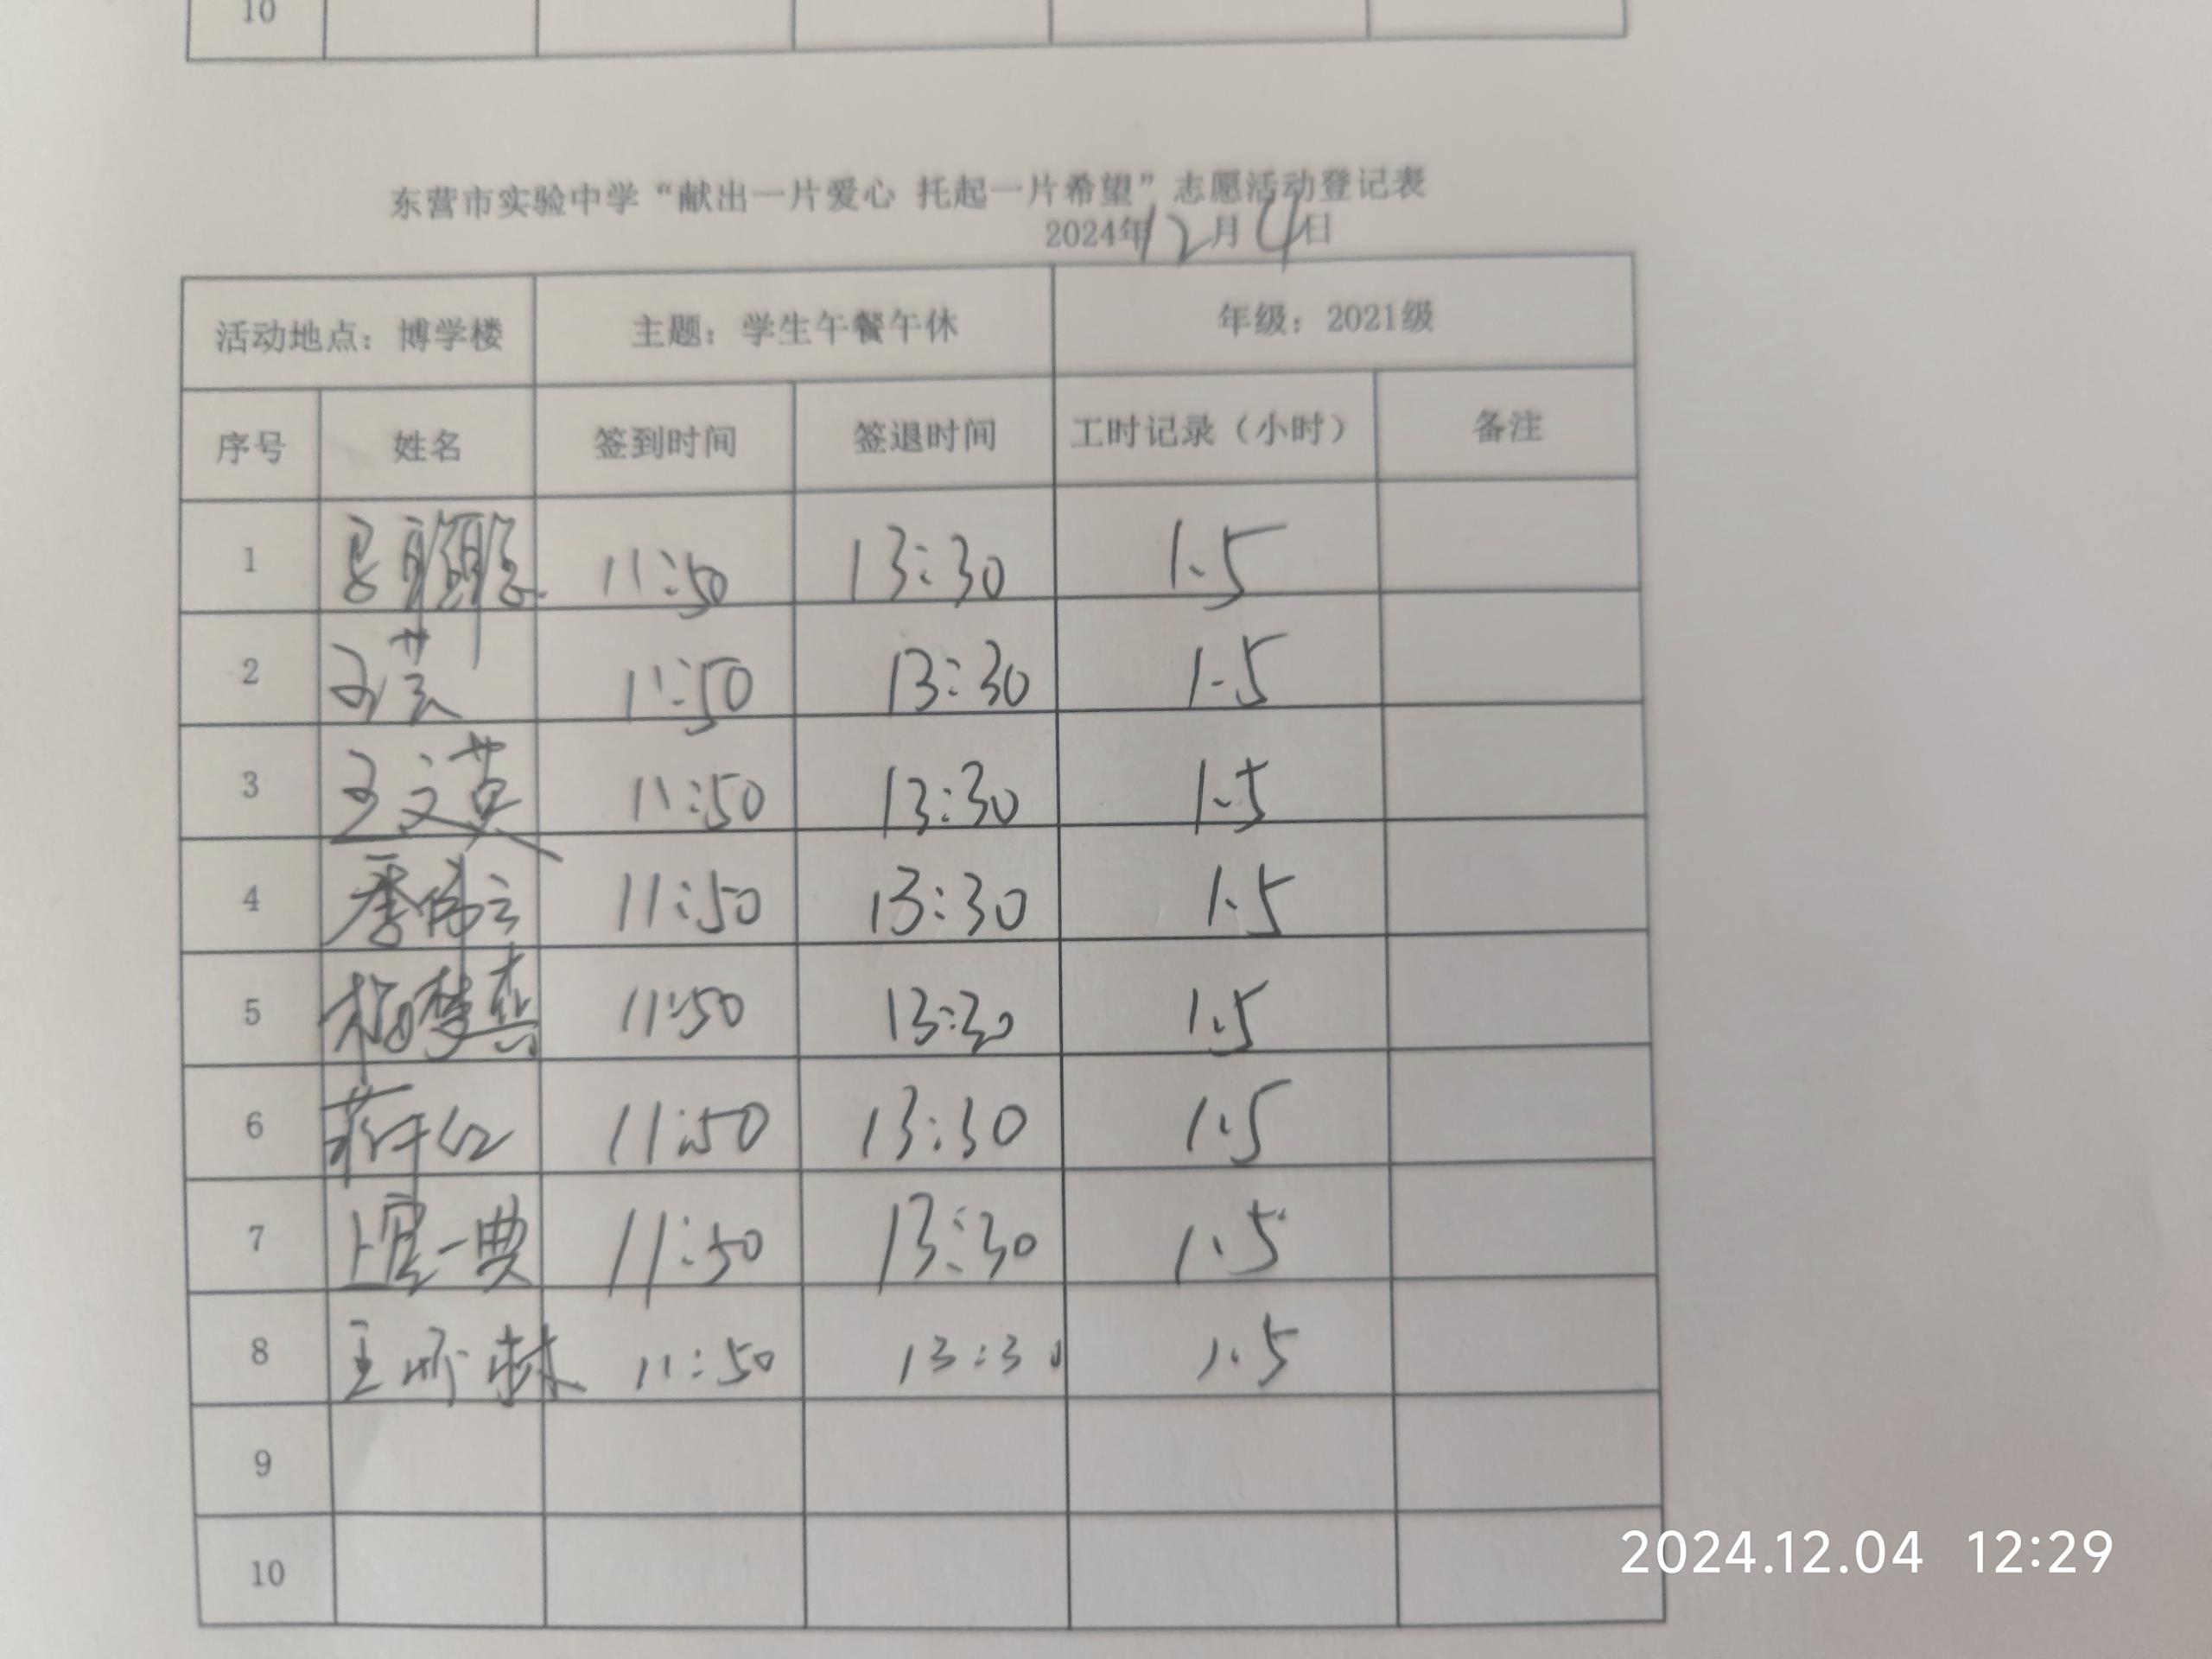 10
东营市实验中学“献出一片爱心 托起一片希望”志愿活动登记表
2024年12月4日
活动地点：博学楼 主题：学生午餐午休 年级：2021级
序号 姓名 签到时间 签退时间 工时记录（小时） 备注
1 11:50 13:30 1.5
2 11:50 13:30 1.5
3 王文英 11:50 13:30 1.5
4 11:50 13:30 1.5
5 11:50 13:30 1.5
6 11:50 13:30 1.5
7 上官一典 11:50 13:30 1.5
8 11:50 13:30 1.5
9
10
2024.12.04 12:29